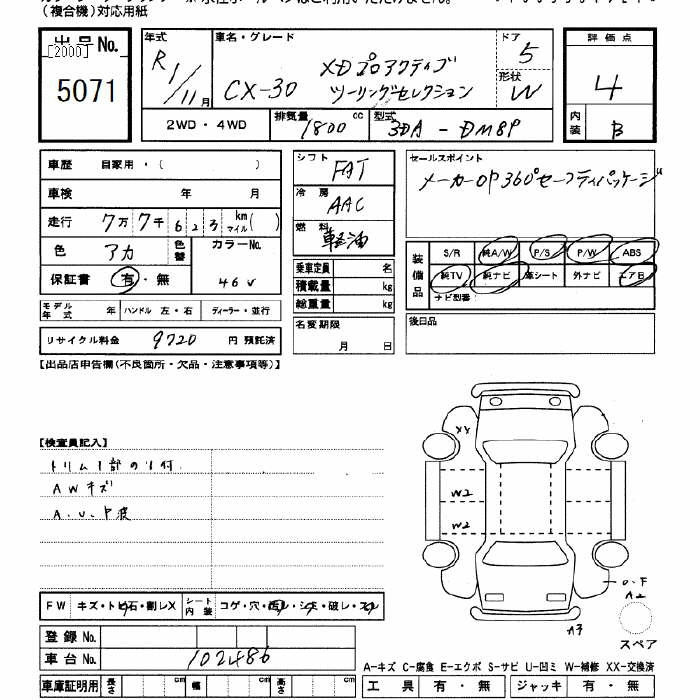 (複合機)対応用紙
出品No.
[2000]
5071
年式 R1/11月
車名・グレード CX-30 XDプロアクティブ
ツーリングセレクション
ドア 5
形状 W
評価点
4
内装 B
2WD・4WD
排気量 1800cc
型式 3DA-DM8P
車歴 自家用・( )
車検 年 月
走行 7万7千623 km マイル( )
色 アカ 色替 カラーNo. 46V
保証書 有・無
モデル年式 年 ハンドル 左・右 ディーラー・並行
リサイクル料金 9720 円 預託済
シフト FAT
冷房 AAC
燃料 軽油
乗車定員 名
積載量 kg
総重量 kg
名変期限
月 日
セールスポイント
メーカーOP360°セーフティパッケージ
装備品
S/R 純A/W P/S P/W ABS
純TV 純ナビ 革シート 外ナビ エアB
ナビ型番:
後日品
【出品店申告欄(不良箇所・欠品・注意事項等)】
【検査員記入】
トリム1部のり付
AWキズ
A.U.P波
XX
W2
W2
A2
A3
スペア
FW キズ・トビ石・割レX シート内装 コゲ・穴・汚レ・シミ・破レ・スレ
登録No.
車台No. 102486
車庫証明用 長さ cm 幅 cm 高さ cm
A-キズ C-腐食 E-エクボ S-サビ U-凹ミ W-補修 XX-交換済
工具 有・無 ジャッキ 有・無